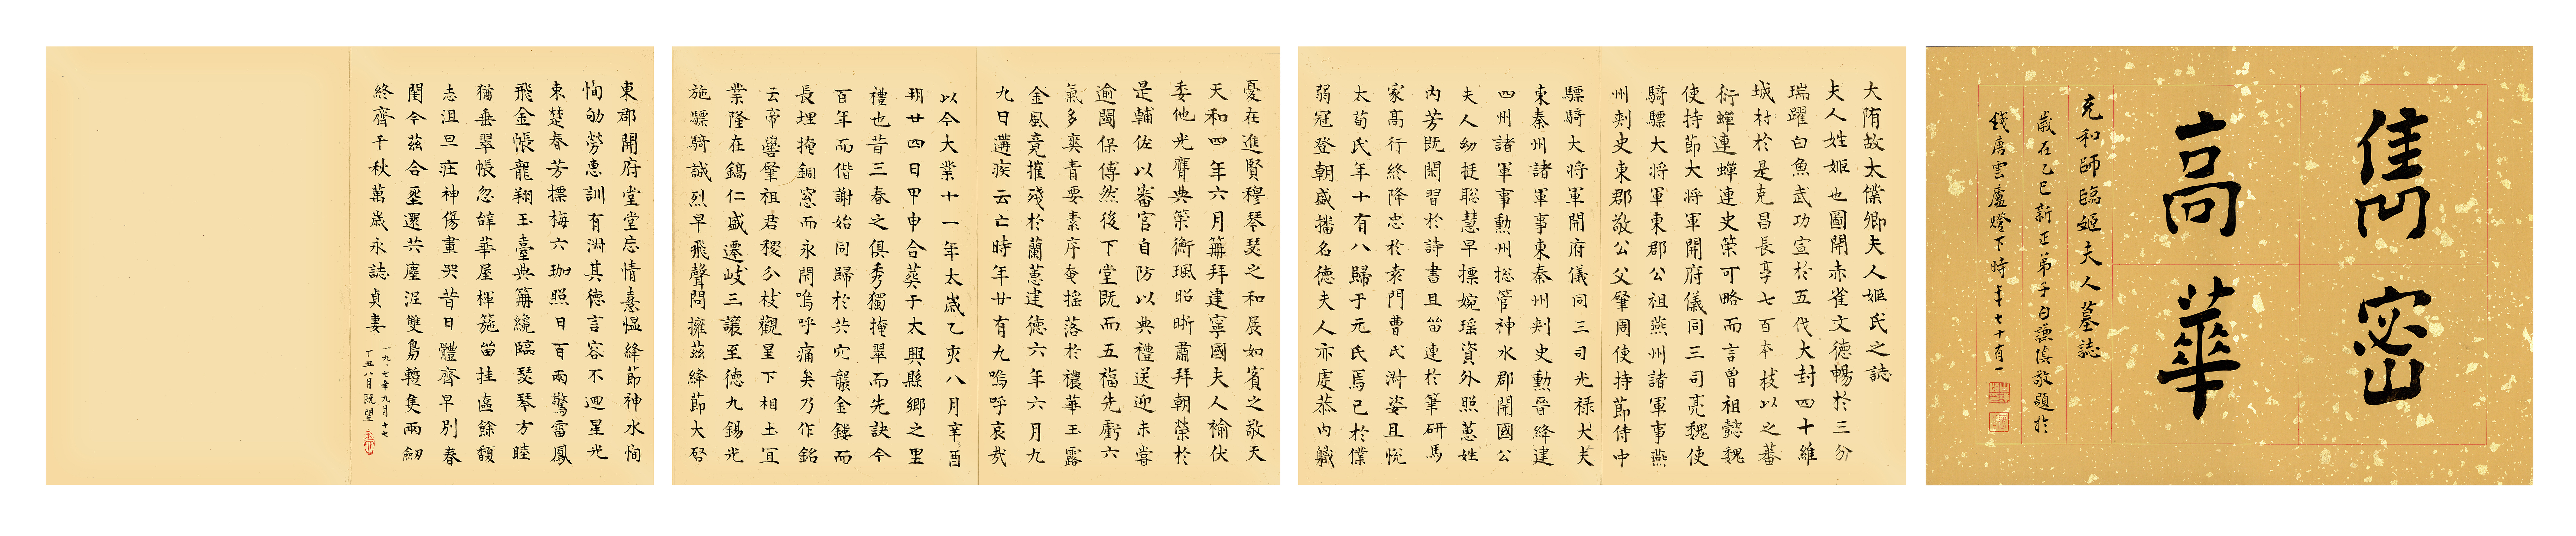 雋密
高華
充和師臨姬夫人墓誌
歲在乙巳新正弟子白謙慎敬題於
錢唐雲廬燈下時年七十有一
大隋故太僕卿夫人姬氏之誌
夫人姓姬也圖開赤雀文德暢於三分
瑞躍白魚武功宣於五伐大封四十維
城村於是克昌長享七百本枝以之蕃
衍蟬連蟬連史策可略而言曾祖懿魏
使持節大將軍開府儀同三司亮魏使
騎驃大將軍東郡公祖燕州諸軍事燕
州刾史東郡敬公父肇周使持節侍中
驃騎大將軍開府儀同三司光祿大夫
東秦州諸軍事東秦州刾史勳晉絳建
四州諸軍事勳州捴管神水郡開國公
夫人幼挺聡慧早摽婉瑶資外照蕙姓
內芳既閑習於詩書且留連於筆研馬
家高行終降志於袁門曹氏淋姿且悅
太荀氏年十有八歸于元氏焉已於僕
弱冠登朝盛播名德夫人亦虔恭內軄
憂在進賢穆琴瑟之和展如賓之敬天
天和四年六月筭拜建寧國夫人褕伏
委他光膺典策衡珮昭晣肅拜朝榮於
是輔佐以審官自防以典禮送迎未嘗
逾閾保傅然後下堂既而五福先虧六
氣多爽青要素序奄搖落於禯華玉露
金風竟摧殘於蘭蕙建德六年六月九
九日遘疾云亡時年廿有九嗚呼哀哉
以今大業十一年太歲乙亥八月辛酉
朔廿四日甲申合葬于大興縣鄉之里
禮也昔三春之俱秀獨掩翠而先訣今
百年而偕謝始同歸於共穴襲金鏤而
長埋掩銅窓而永閇嗚呼痛矣乃作銘
云帝嚳肇祖君稷分枝觀星下相土宜
業隆在鎬仁盛遷岐三讓至德九錫光
施驃騎誠烈早飛聲問擁茲絳節大啓
東郡開府堂堂忘情憙愠絳節神水恂
恂劬勞惠訓有淋其德言容不迴星光
東楚春芳摽梅六珈照日百兩驚雷鳳
飛金帳龍翔玉臺典筭纔臨瑟琴方睦
猶垂翠帳忽辝華屋楎箷留挂匳餘馥
志沮旦疰神傷晝哭昔日體齊早別春
閏今茲合壐還共塵涅雙鳧轊集兩劒
終齊千秋萬歲永誌貞妻
一九九七年九月十七
丁丑八月既望